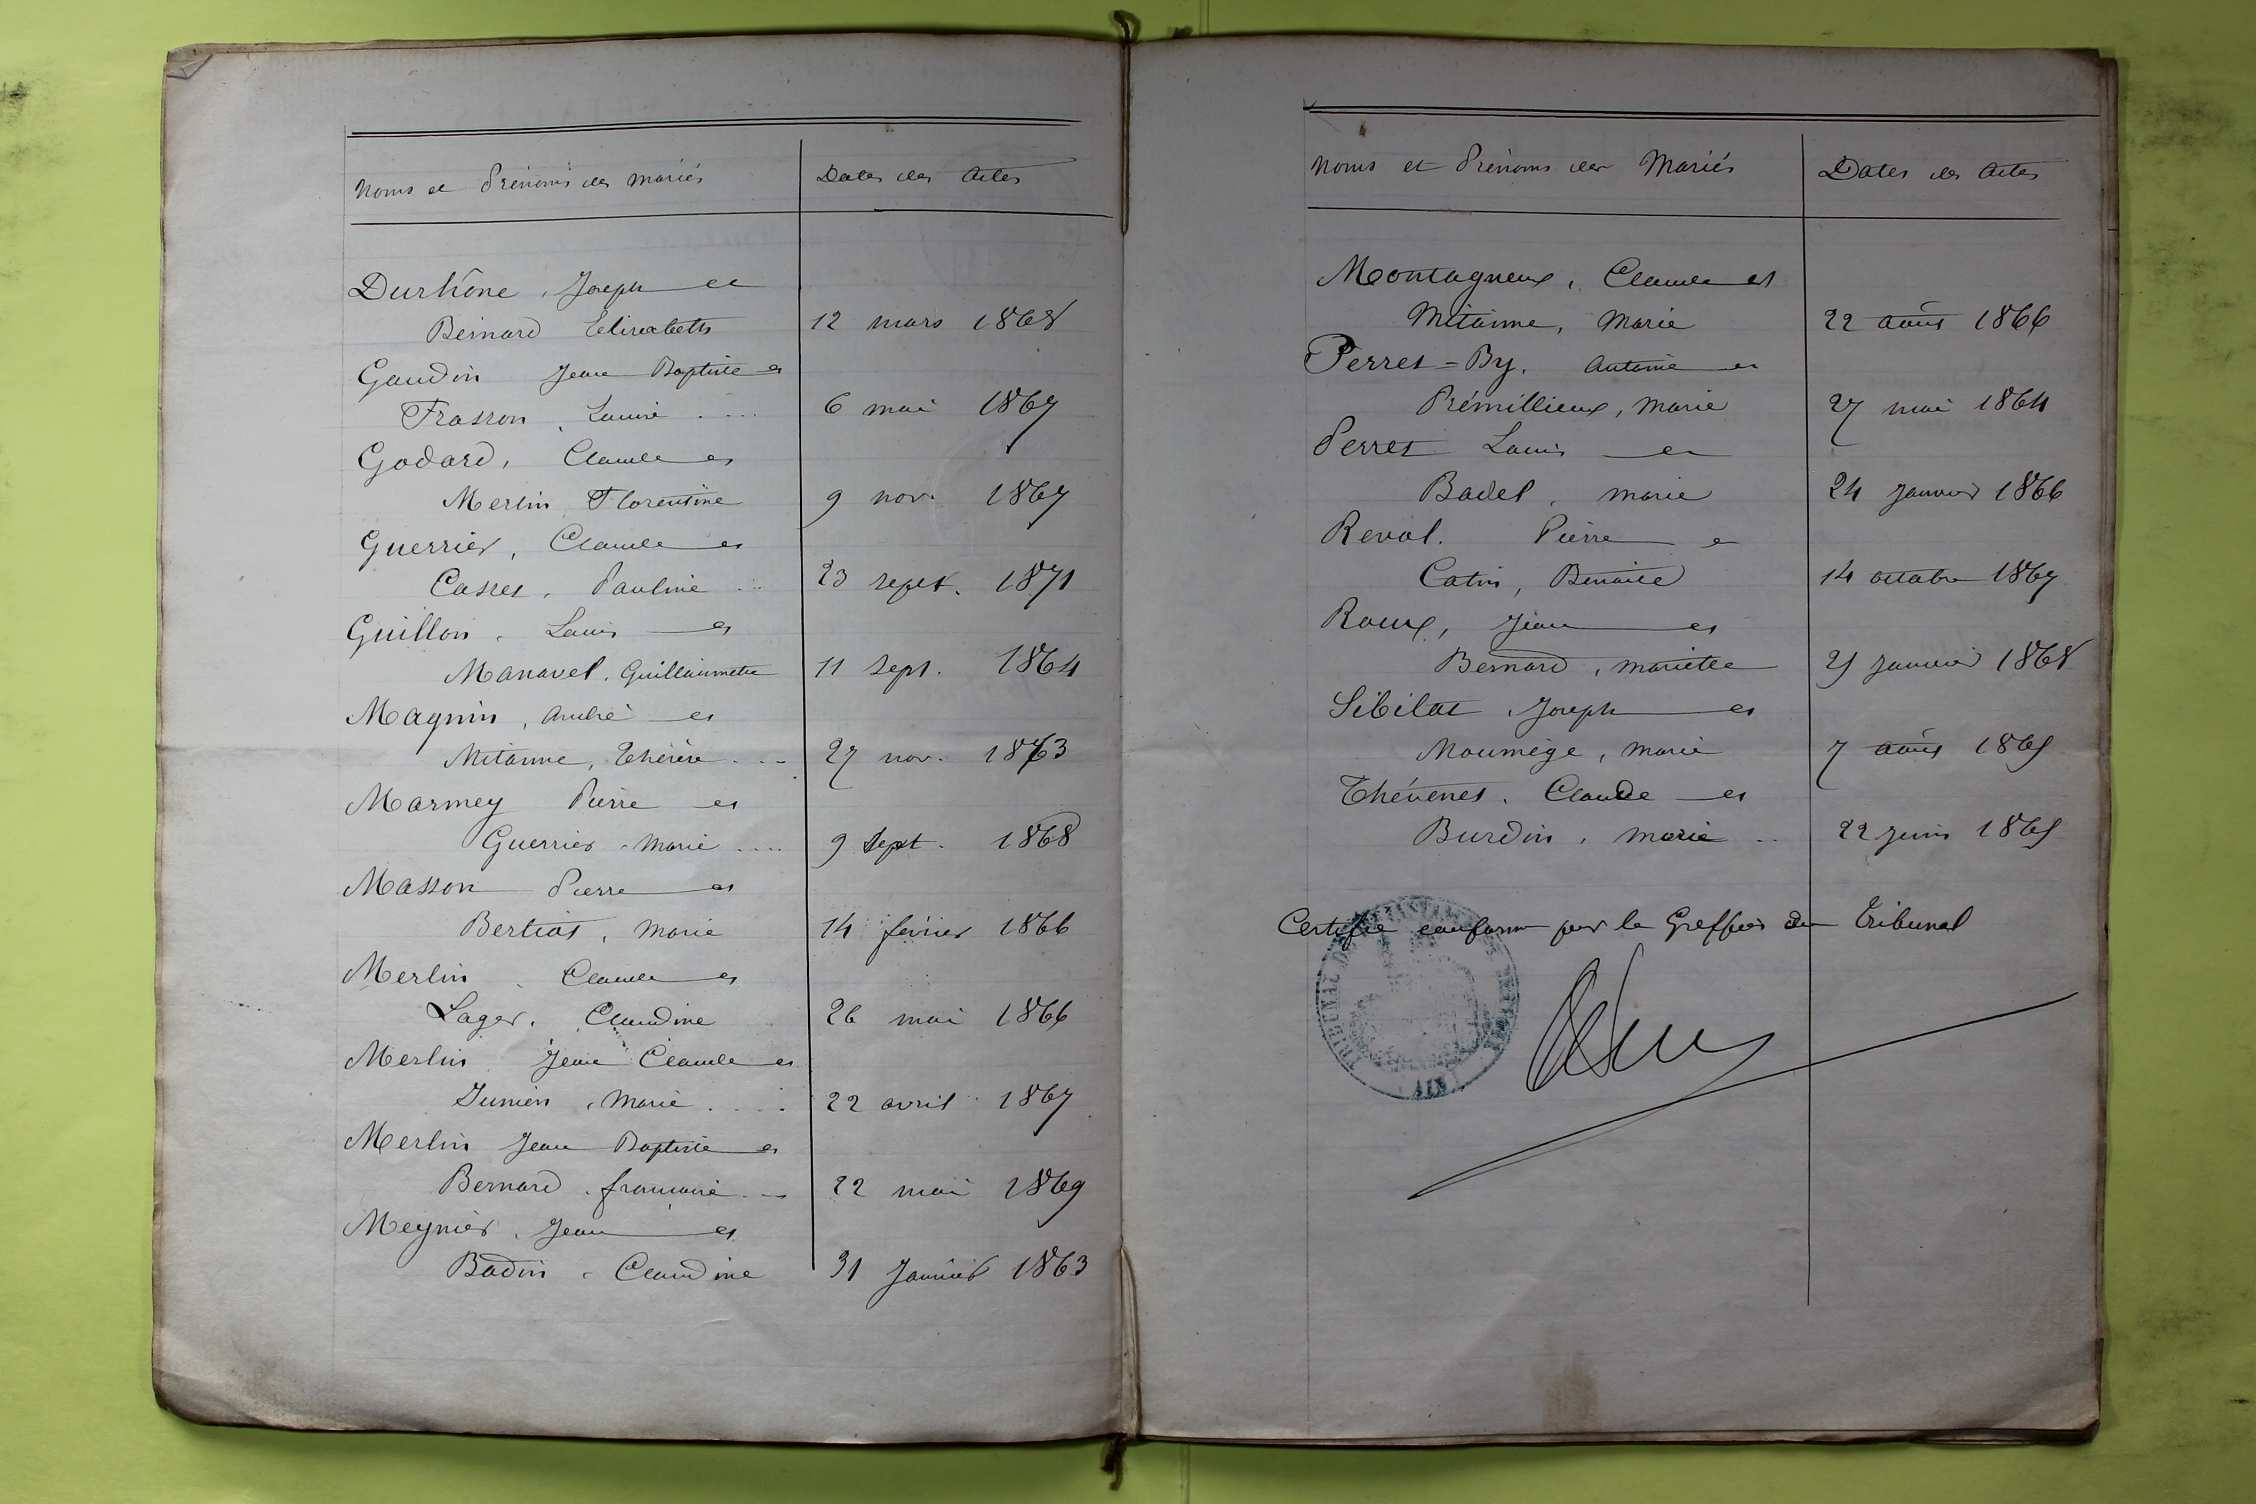 Noms et Prénoms des mariés Dates des Actes
Durhône, Joseph et
Bernard Elisabeth 12 mars 1868
Gaudin Jean Baptiste et
Frasson, Louise .... 6 mai 1867
Godard, Claude et
Merlin Florentine 9 nov. 1867
Guerrier, Claude et
Casses, Pauline ... 23 sept. 1871
Guillon, Louis et
Manavel, Guillaumette 11 sept. 1864
Magnin, André et
Mitanne, Thérèse ... 27 nov. 1873
Marmey Pierre et
Guerrier, Marie .... 9 Sept. 1868
Masson Pierre et
Bertiat, Marie 14 février 1866
Merlin, Claude et
Lager, Claudine 26 mai 1866
Merlin Jean Claude et
Junien, Marie .... 22 avril 1867
Merlin Jean Baptiste et
Bernard, françoise .. 22 mai 1869
Meynier, Jean et
Badin, Claudine 31 Janvier 1863
Noms et Prénoms des Mariés Dates des Actes
Montagneux, Claude et
Mitanne, Marie 22 août 1866
Perret=By, Antoine et
Prémillieux, Marie 27 mai 1864
Perret Louis et
Badel, Marie 24 Janvier 1866
Reval. Pierre et
Catin, Benoite 14 octobre 1867
Roux, Jean et
Bernard, mariette 25 Janvier 1868
Sibilat, Joseph et
Moumège, Marie 7 août 1865
Thévenet, Claude et
Burdin, Marie .. 22 juin 1865
Certifié conforme par le Greffier du Tribunal
TRIBUNAL DE